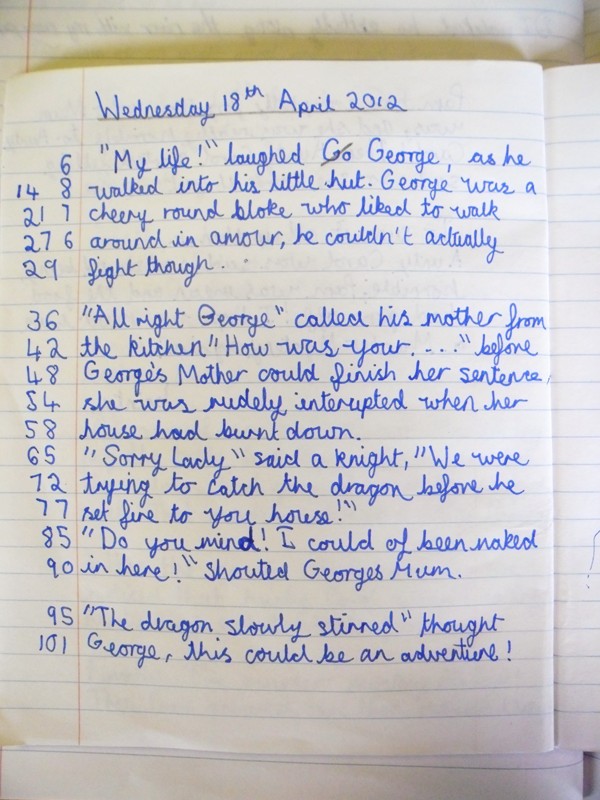 Wednesday 18th April 2012
6 "My life!" laughed Go George, as he
14 8 walked into his little hut. George was a
21 7 cheery round bloke who liked to walk
27 6 around in amour, he couldn't actually
29 fight though.
36 "All right George" called his mother from
42 the kitchen "How was your...." before
48 George's Mother could finish her sentence,
54 she was rudely interupted when her
58 house had burnt down.
65 "Sorry Lady" said a knight, "We were
72 trying to catch the dragon before he
77 set fire to you house!"
85 "Do you mind! I could of been naked
90 in here!" shouted Georges Mum.
95 "The dragon slowly stirred" thought
101 George, this could be an adventure!